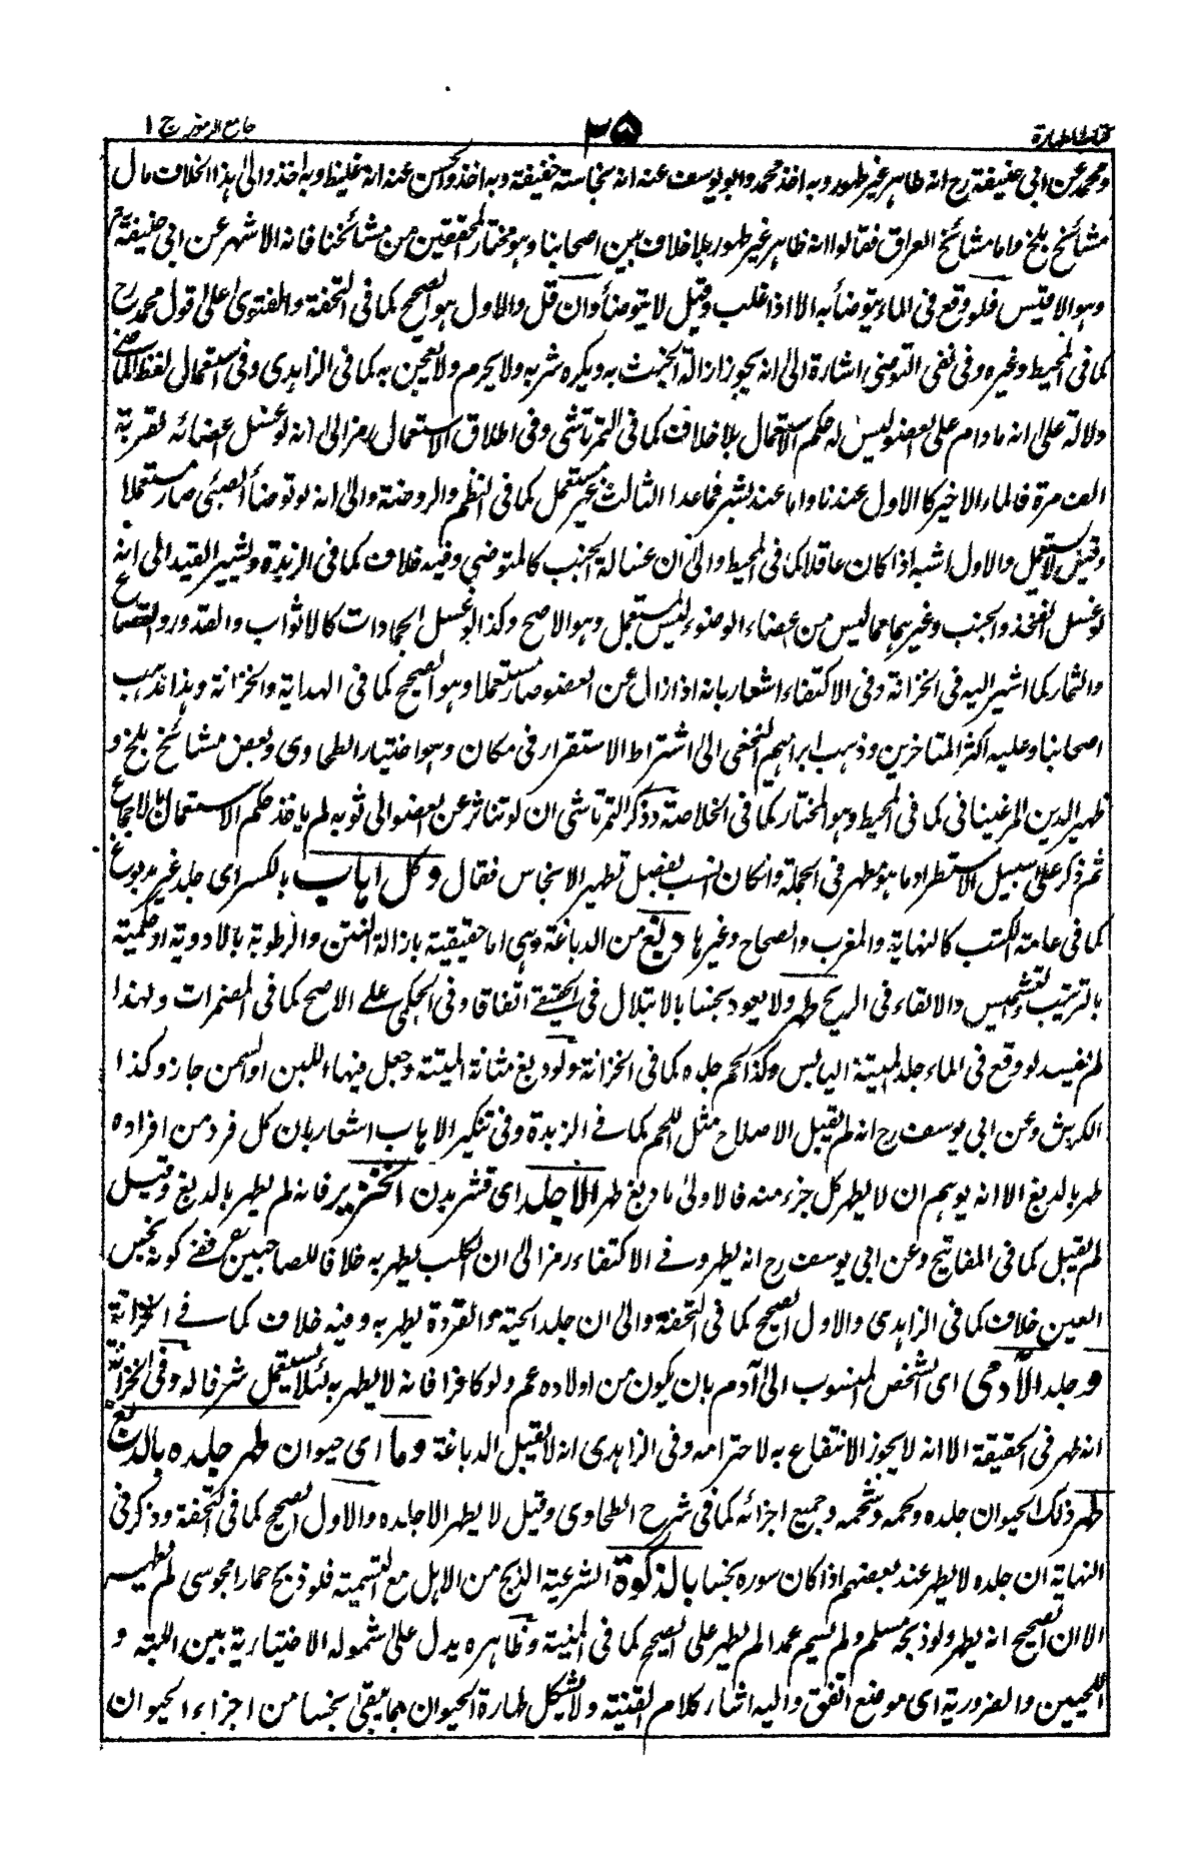 كتاب الطهارة ٣٥ جامع الرموز ج ١
ومحمد عن ابى حنيفة رح انه طاهر غير طهور وبه اخذ محمد وابو يوسف عنه انه نجاسته خفيفة وبه اخذ والحسن عنه انه غليظ وبه اخذ والى هذا الخلاف مال
مشائخ بلخ واما مشائخ العراق فقالوا انه طاهر غير طهور بلا خلاف بين اصحابنا وهو مختار المحققين من مشائخنا فانه الاشهر عن ابى حنيفة رح
وهو الاقيس فلو وقع فى الماء يتوضأ به الا اذا غلب وقيل لا يتوضأ وان قل والاول هو الصحيح كما فى التحفة والفتوى على قول محمد رح
كما فى المحيط وغيره وفى نفى التوضى اشارة الى انه يجوز ازالة الخبث به ويكره شربه ولا يحرم ولا يعجن به كما فى الزاهدى وفى استعمال لفظ الماضى
دلالة على انه مادام على العضو ليس له حكم الاستعمال بلا خلاف كما فى التمرتاشى وفى اطلاق الاستعمال رمز الى انه لو غسل اعضائه لقربة
الف مرة فالماء الاخير كالاول عندنا واما عند بشر فما عدا الثالث غير مستعمل كما فى النظم والروضة والى انه لو توضأ الصبى صار مستعملا
وقيل لا يستعمل والاول اشبه اذا كان عاقلا كما فى المحيط والى ان غسالة الجنب كالمتوضى وفيه خلاف كما فى الزبدة ويشير القيد الى انه
لو غسل الفخذ والجنب وغيرهما مما ليس من اعضاء الوضوء ليس بمستعمل وهو الاصح وكذا لو غسل الجمادات كالاثواب والقدور والقصاع
والثمار كما اشير اليه فى الخزانة وفى الاكتفاء اشعار بانه اذا زال عن العضو صار مستعملا وهو الصحيح كما فى الهداية والخزانة وهذا مذهب
اصحابنا وعليه اكثر المتاخرين وذهب ابراهيم النخعى الى اشتراط الاستقرار فى مكان وهو اختيار الطحاوى وبعض مشائخ بلخ و
ظهير الدين المرغينانى كما فى المحيط وهو المختار كما فى الخلاصة وذكر التمرتاشى ان لو تناثر عن العضو الى ثوبه لم ياخذ حكم الاستعمال بالاجماع
ثم ذكر على سبيل الاستطراد ما هو مطهر فى الجملة وان كان انسب بفصل تطهير الانجاس فقال وكل اهاب بالكسر اى جلد غير مدبوغ
كما فى عامة الكتب كالنهاية والمغرب والصحاح وغيرها دبغ من الدباغة وهى اما حقيقية بازالة النتن والرطوبة بالادوية او حكمية
بالتتريب والتشميس والالقاء فى الريح طهر ولا يعود نجسا بالابتلال فى الحقيقى اتفاقا وفى الحكمى على الاصح كما فى المضمرات ولهذا
لم يفسد لو وقع فى الماء جلد الميتة اليابس وكذا لحم جلده كما فى الخزانة ولو دبغ مثانة الميتة وجعل فيها اللبن او السمن جاز وكذا
الكرش وعن ابى يوسف رح انه لم يقبل الاصلاح مثل اللحم كما فى الزبدة وفى تنكير الاهاب اشعار بان كل فرد من افراده
طهر بالدبغ الا انه يوهم ان لا يطهر كل جزء منه فالاولى ما دبغ طهر الا جلد اى قشر بدن الخنزير فانه لم يطهر بالدبغ وقيل
لم يقبل كما فى المفاتيح وعن ابى يوسف رح انه يطهر وفى الاكتفاء رمز الى ان الكلب يطهر به خلافا للصاحبين ففى كونه نجس
العين خلاف كما فى الزاهدى والاول الصحيح كما فى التحفة والى ان جلد الحية والقردة يطهر به وفيه خلاف كما فى الخزانة
وجلد الآدمى اى الشخص المنسوب الى آدم بان يكون من اولاده عم ولو كافرا فانه لا يطهر به لئلا يستعمل شرفا له وفى الخزانة
انه طهر فى الحقيقة الا انه لا يجوز الانتفاع به لاحترامه وفى الزاهدى انه لا يقبل الدباغة وما اى حيوان طهر جلده بالدبغ
طهر ذلك الحيوان جلده ولحمه وشحمه وجميع اجزائه كما فى شرح الطحاوى وقيل لا يطهر الا جلده والاول الصحيح كما فى التحفة وذكر فى
النهاية ان جلده لا يطهر عند بعضهم اذا كان سوره نجسا بالذكوة الشرعية الذبح من الاهل مع التسمية فلو ذبح حمارا مجوسى لم يطهر
الا ان الصحيح انه يطهر ولو ذبحه مسلم ولم يسم عمدا لم يطهر على الصحيح كما فى المنية وظاهره يدل على شموله الاختيارية بين اللبة و
اللحيين والضرورية اى موضع اتفق واليه اشار كلام القنية ولا يشكل طهارة الحيوان بما يبقى نجسا من اجزاء الحيوان